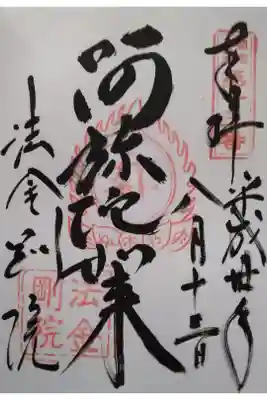 奉拝
平成廿年
八月十三日
阿弥陀如来
法金剛院
法金
剛院